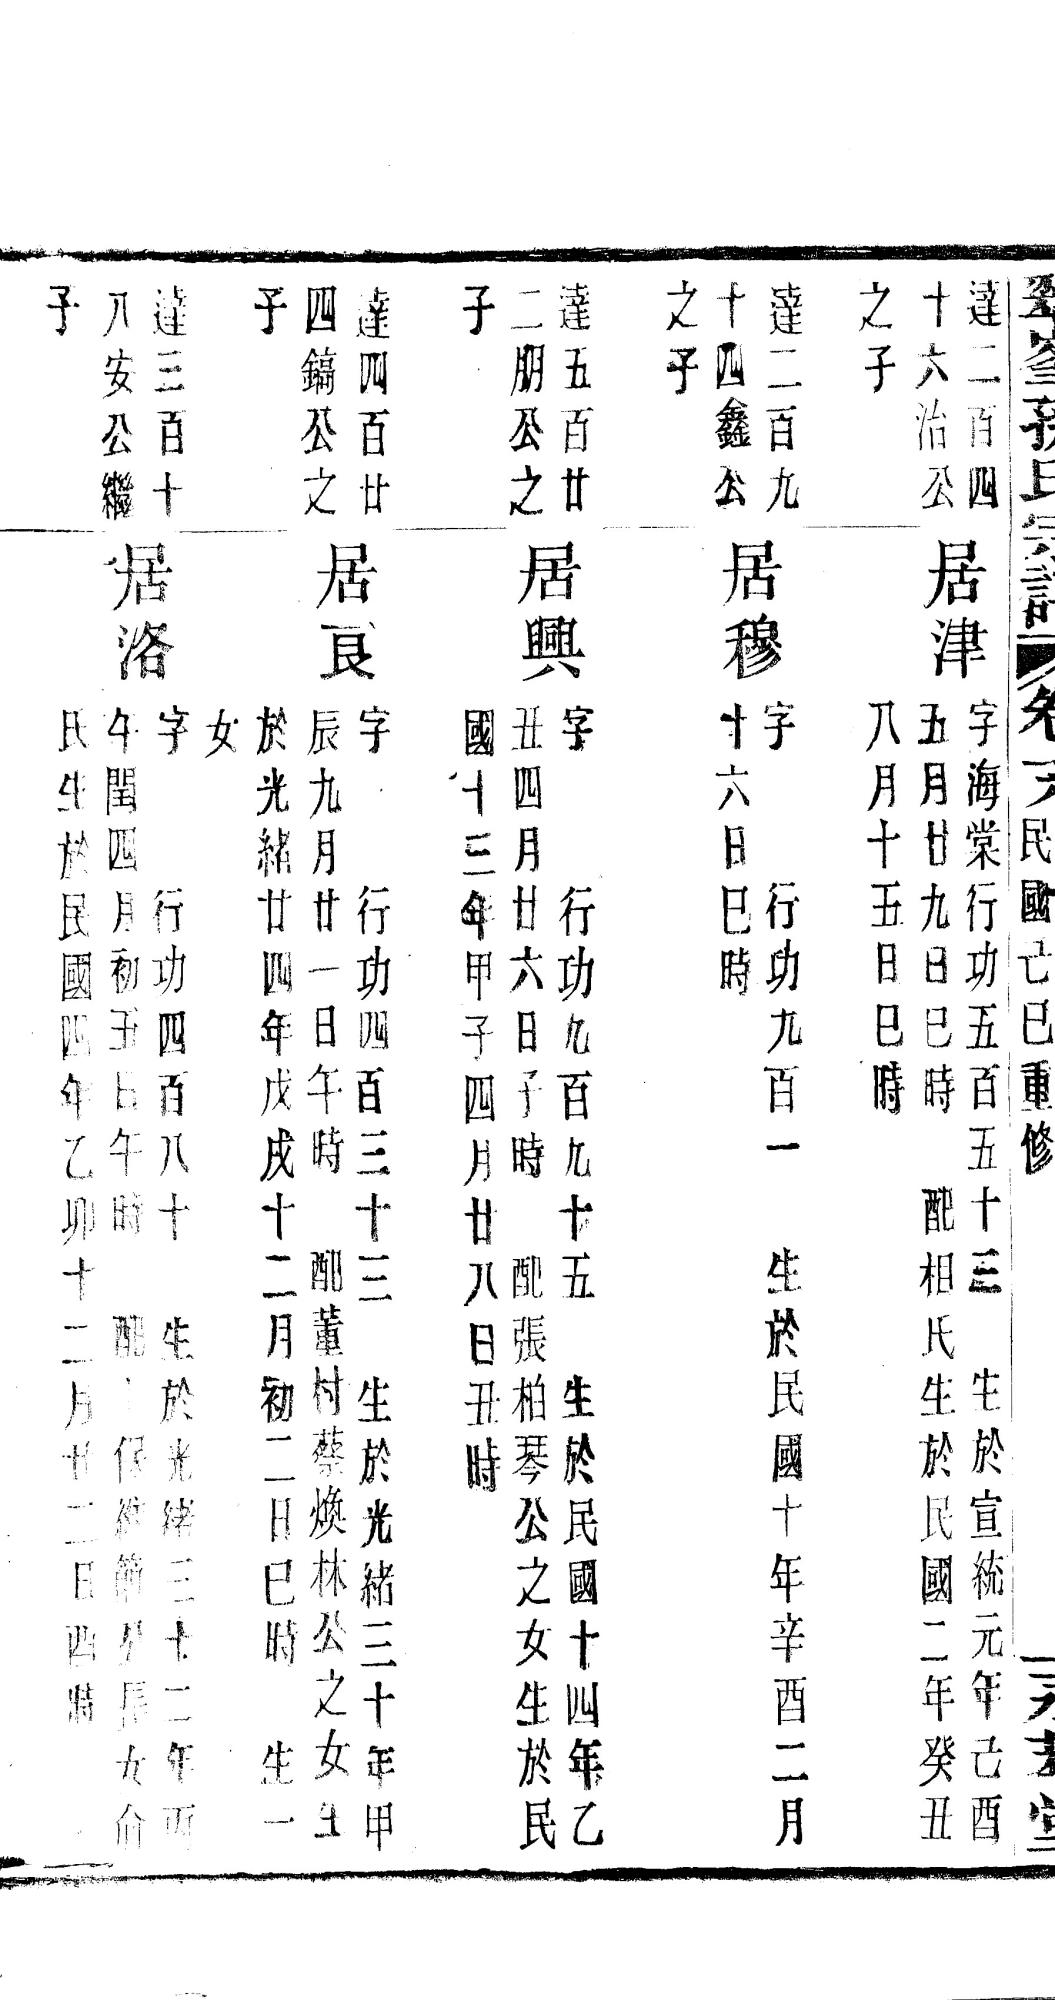 孫氏宗譜 卷 民國己巳重修 堂
達二百四
十六治公
之子
居津
字海棠行功五百五十三 生於宣統元年己酉
五月廿九日巳時 配相氏生於民國二年癸丑
八月十五日巳時
達二百九
十四鑫公
之子
居穆
字 行功九百一 生於民國十年辛酉二月
十六日巳時
達五百廿
二朋公之
子
居興
字 行功九百九十五 生於民國十四年乙
丑四月廿六日子時 配張柏琴公之女生於民
國十三年甲子四月廿八日丑時
達四百廿
四鎬公之
子
居良
字 行功四百三十三 生於光緒三十年甲
辰九月廿一日午時 配董村蔡煥林公之女生
於光緒廿四年戊戌十二月初二日巳時 生一
女
達三百十
八安公繼
子
居洛
字 行功四百八十 生於光緒三十二年丙
午閏四月初五日午時 配 保 節 長女俞
氏生於民國四年乙卯十二月廿二日酉時